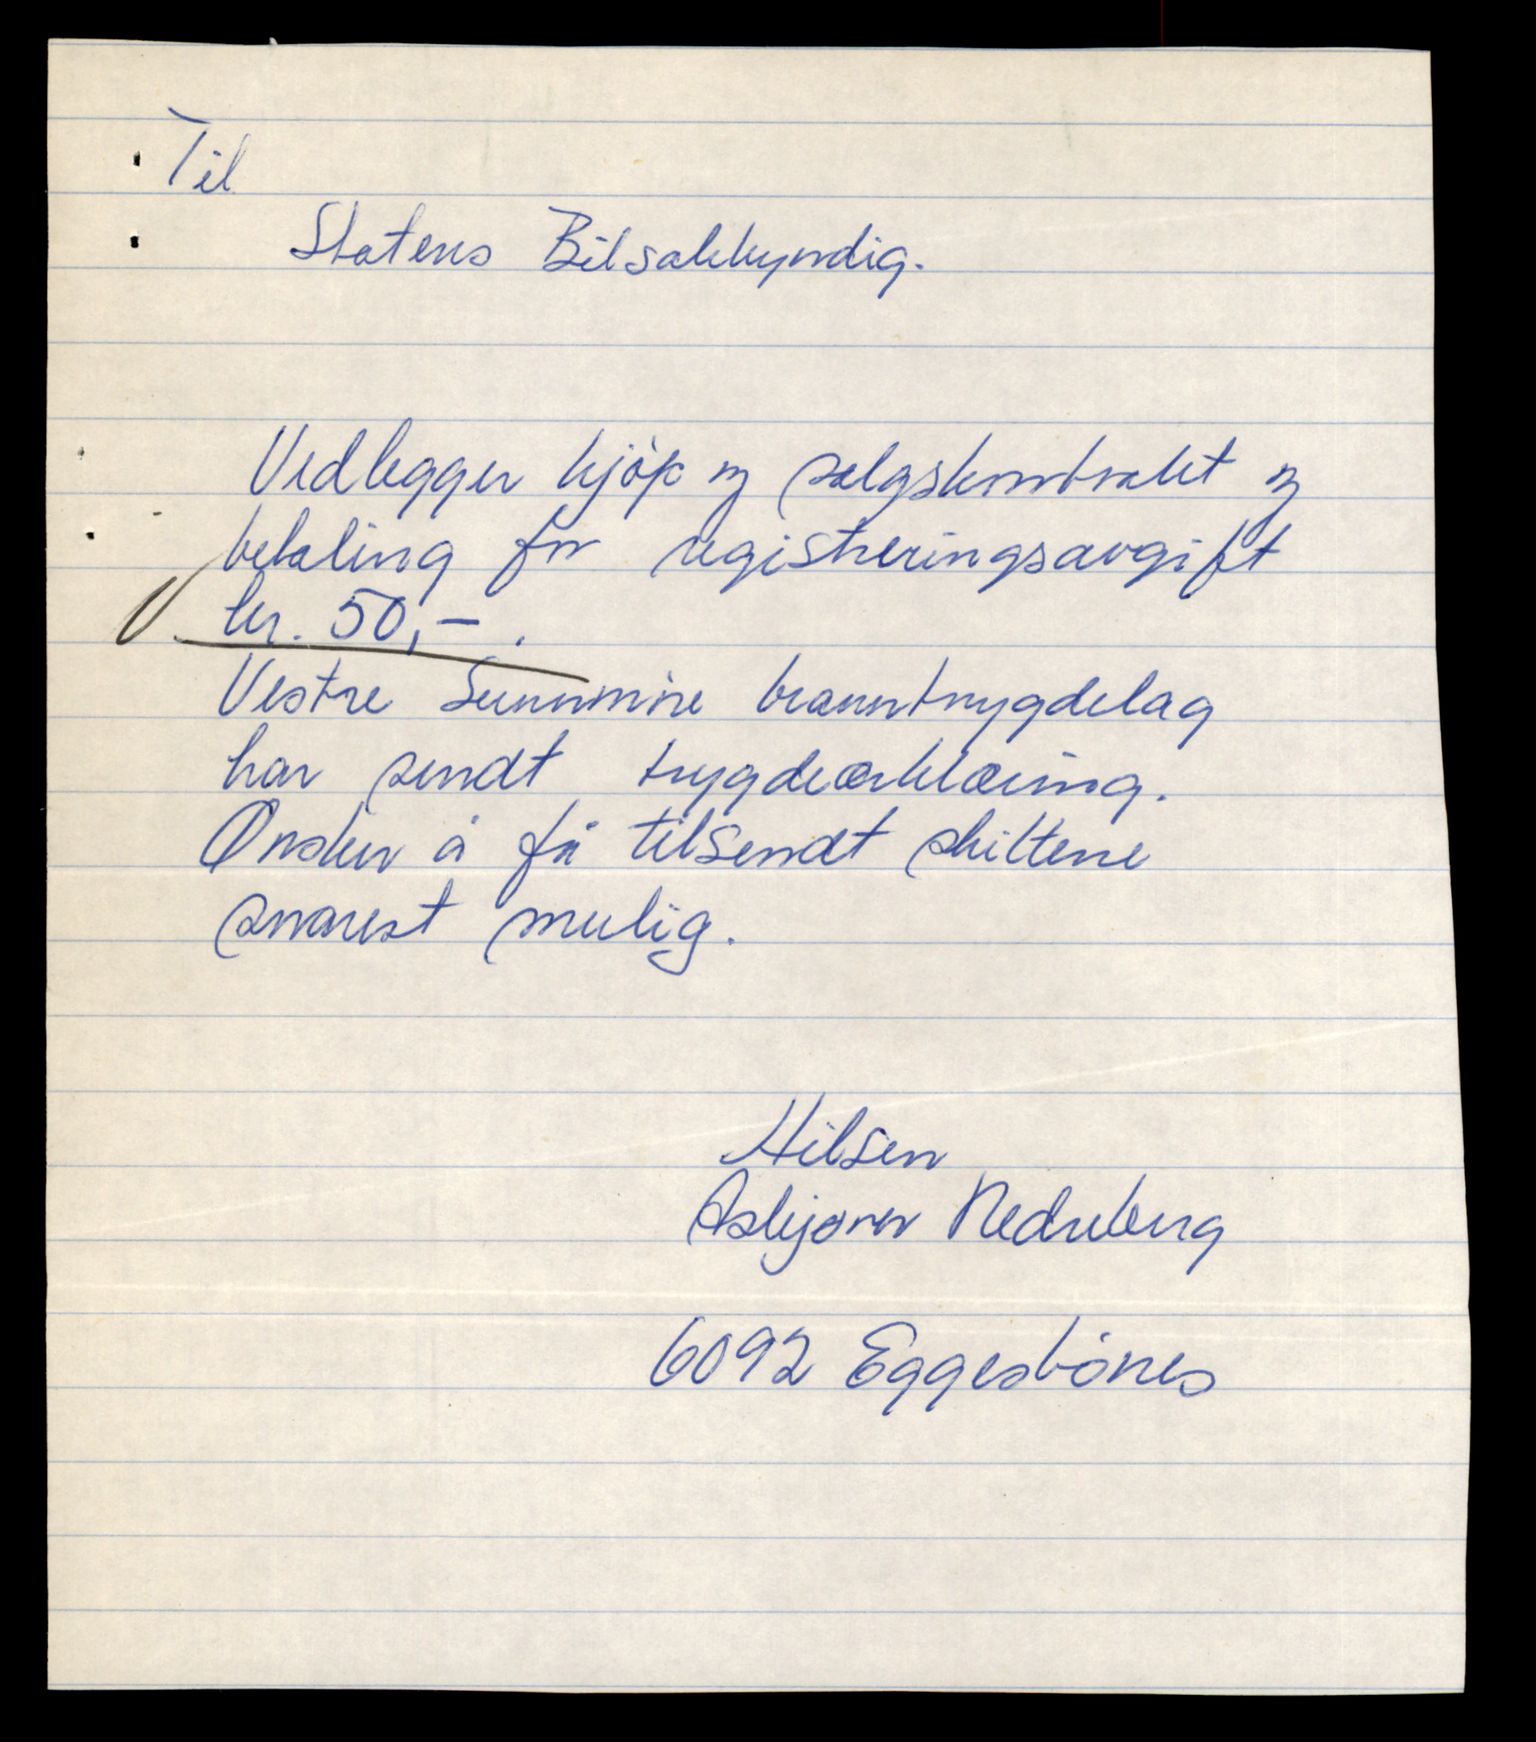 Til
Statens Bilsakkyndig.
Vedlegger kjøp og salgskontrakt og
betaling for registreringsavgift
kr. 50,- .
Vestre Sunnmøre branntrygdelag
har sendt trygdeærklæring.
Ønsker å få tilsendt skiltene
snarest mulig.
Hilsen
Asbjørn Nedreberg
6092 Eggesbönes